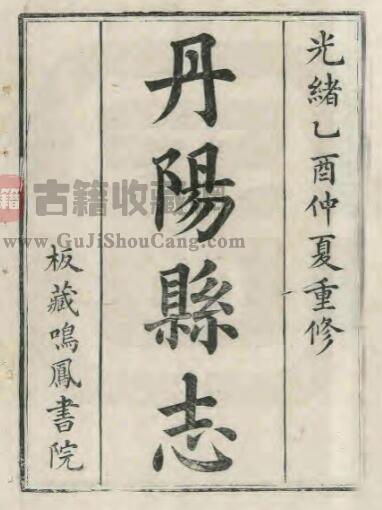 光緒乙酉仲夏重修
丹陽縣志
板藏鳴鳳書院
古籍收藏
www.GuJiShouCang.com